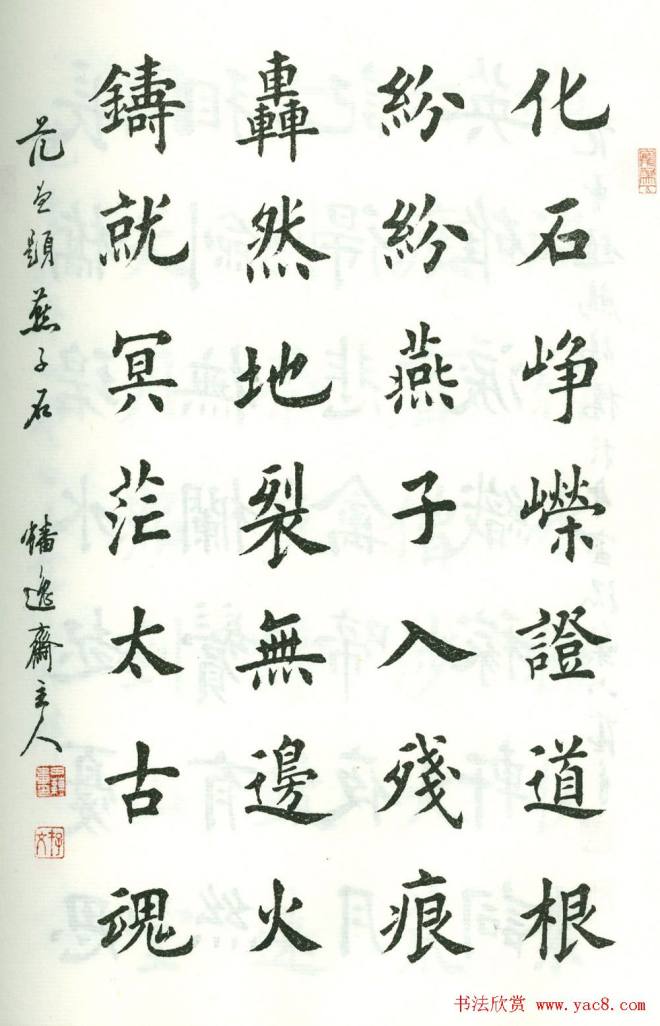 化石崢嶸證道根
紛紛燕子入殘痕
轟然地裂無邊火
鑄就冥茫太古魂
范曾題燕子石
幡逸齋主人
书法欣赏 www.yac8.com